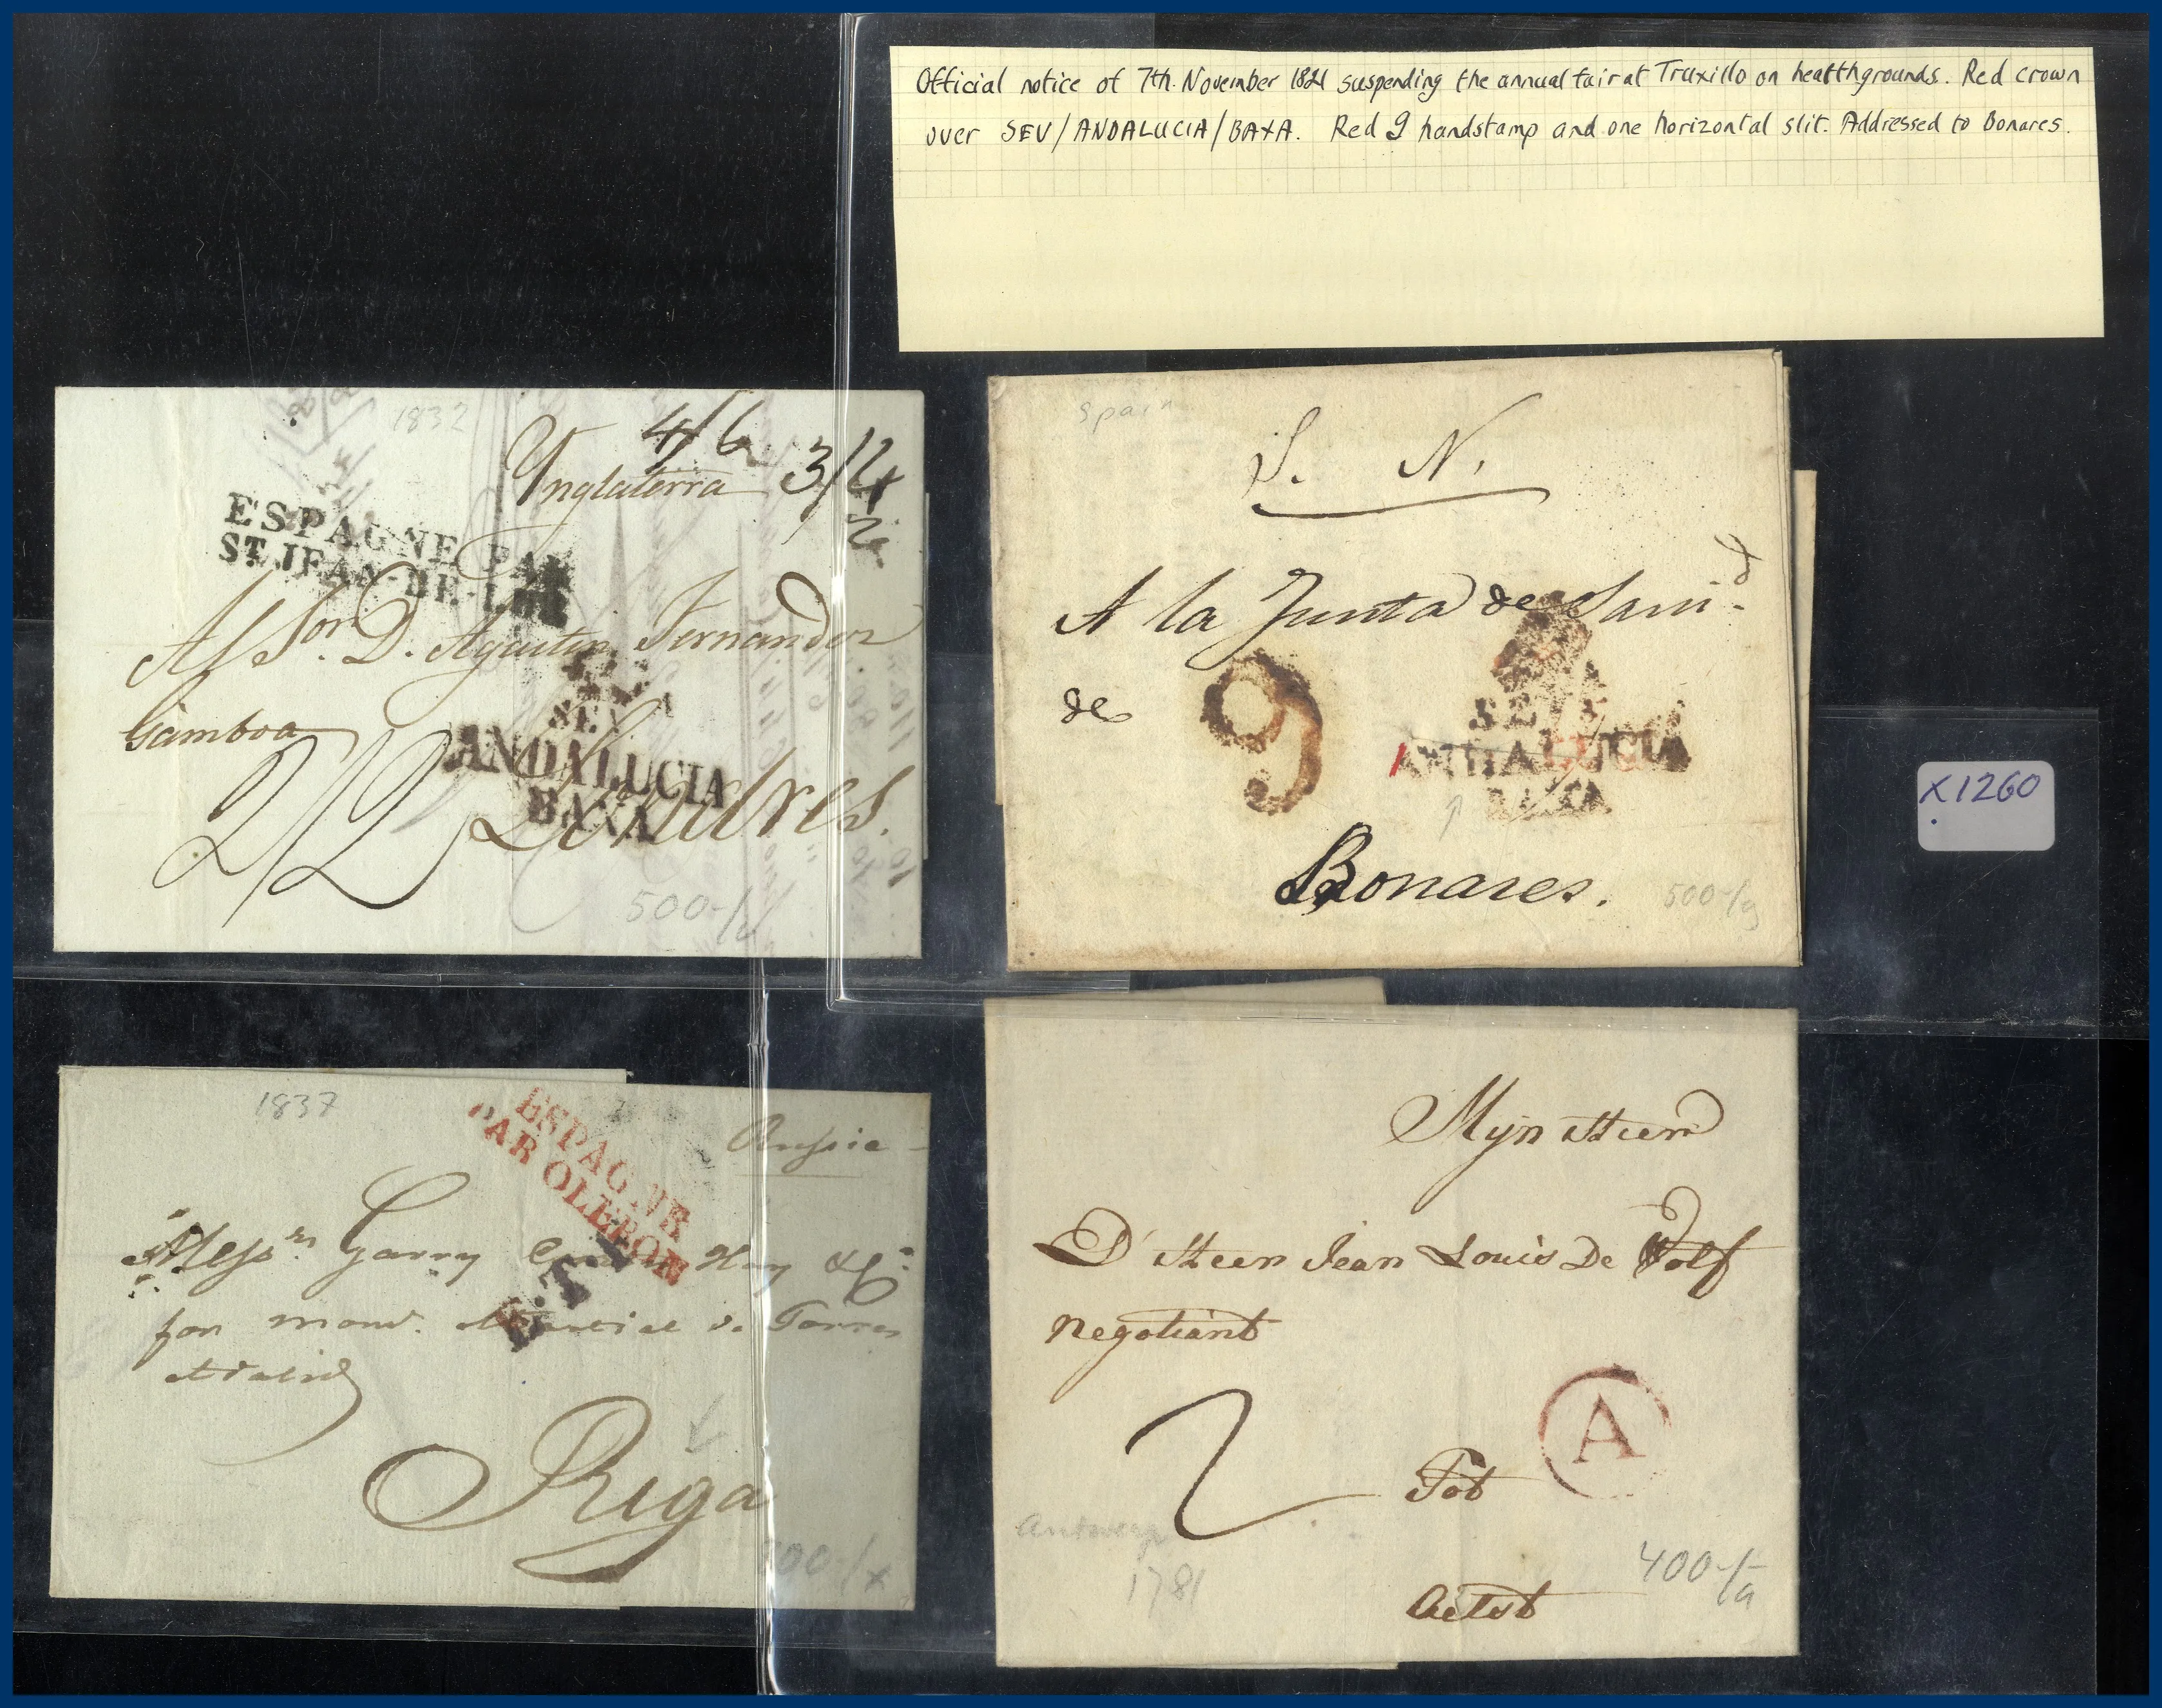 Official notice of 7th. November 1821 suspending the annual fair at Truxillo on health grounds. Red crown
over SEV/ANDALUCIA/BAXA. Red 9 handstamp and one horizontal slit. Addressed to Bonares.
1832
4/6
Ynglaterra 3/4
ESPAGNE PAR
ST. JEAN-DE-LUZ
Al Sor. D. Agustin Fernandez
Gamboa
SEV
ANDALUCIA
BAXA
2/2 Londres.
500-/
Spain
S. N.
A la Junta de Sanid.
de
9
SEV
ANDALUCIA
BAXA
Bonares.
500-/9
X1260
1837
ESPAGNE
PAR OLERON
Russie
Messrs. Garry Hay & Co
for
Riga
00-/x
Mÿn Heer
D'Heer Jean Louis De Wolf
Negotiant
A
2
Tot
Antwerp
1781
400-/a
Aelst